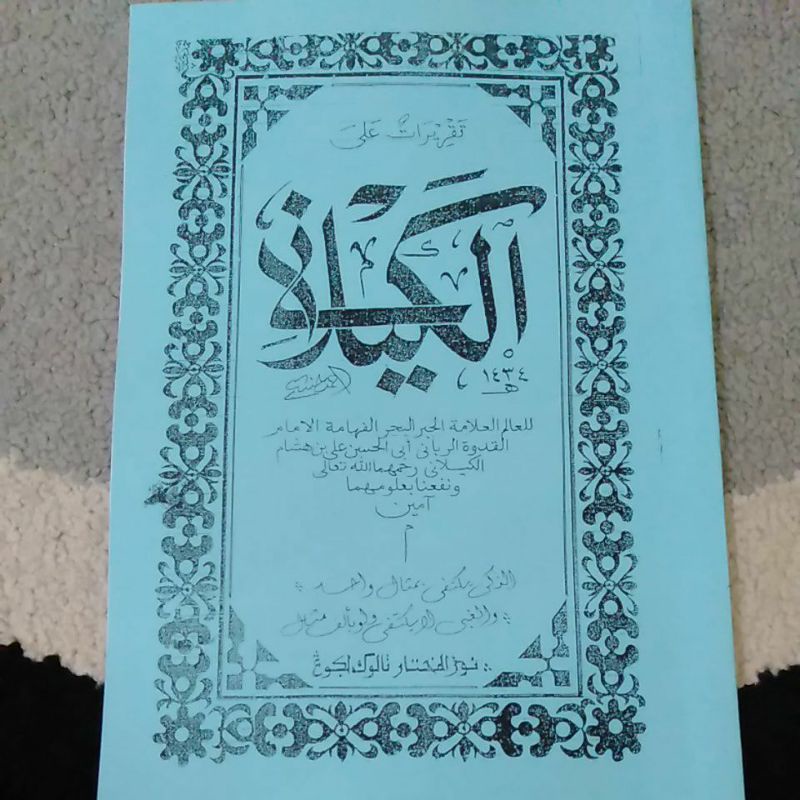 تَقْرِيْرَاتٌ عَلَى
الكيلاني
١٤٣٤
هـ
للعالم العلامة الحبر البحر الفهامة الامام
القدوة الرباني أبي الحسن علي بن هشام
الكيلاني رحمهما الله تعالى
ونفعنا بعلومهما
آمين
م
الذكي يكتفي بمثال واحد
والغبي لا يكتفي ولو بألف مثال